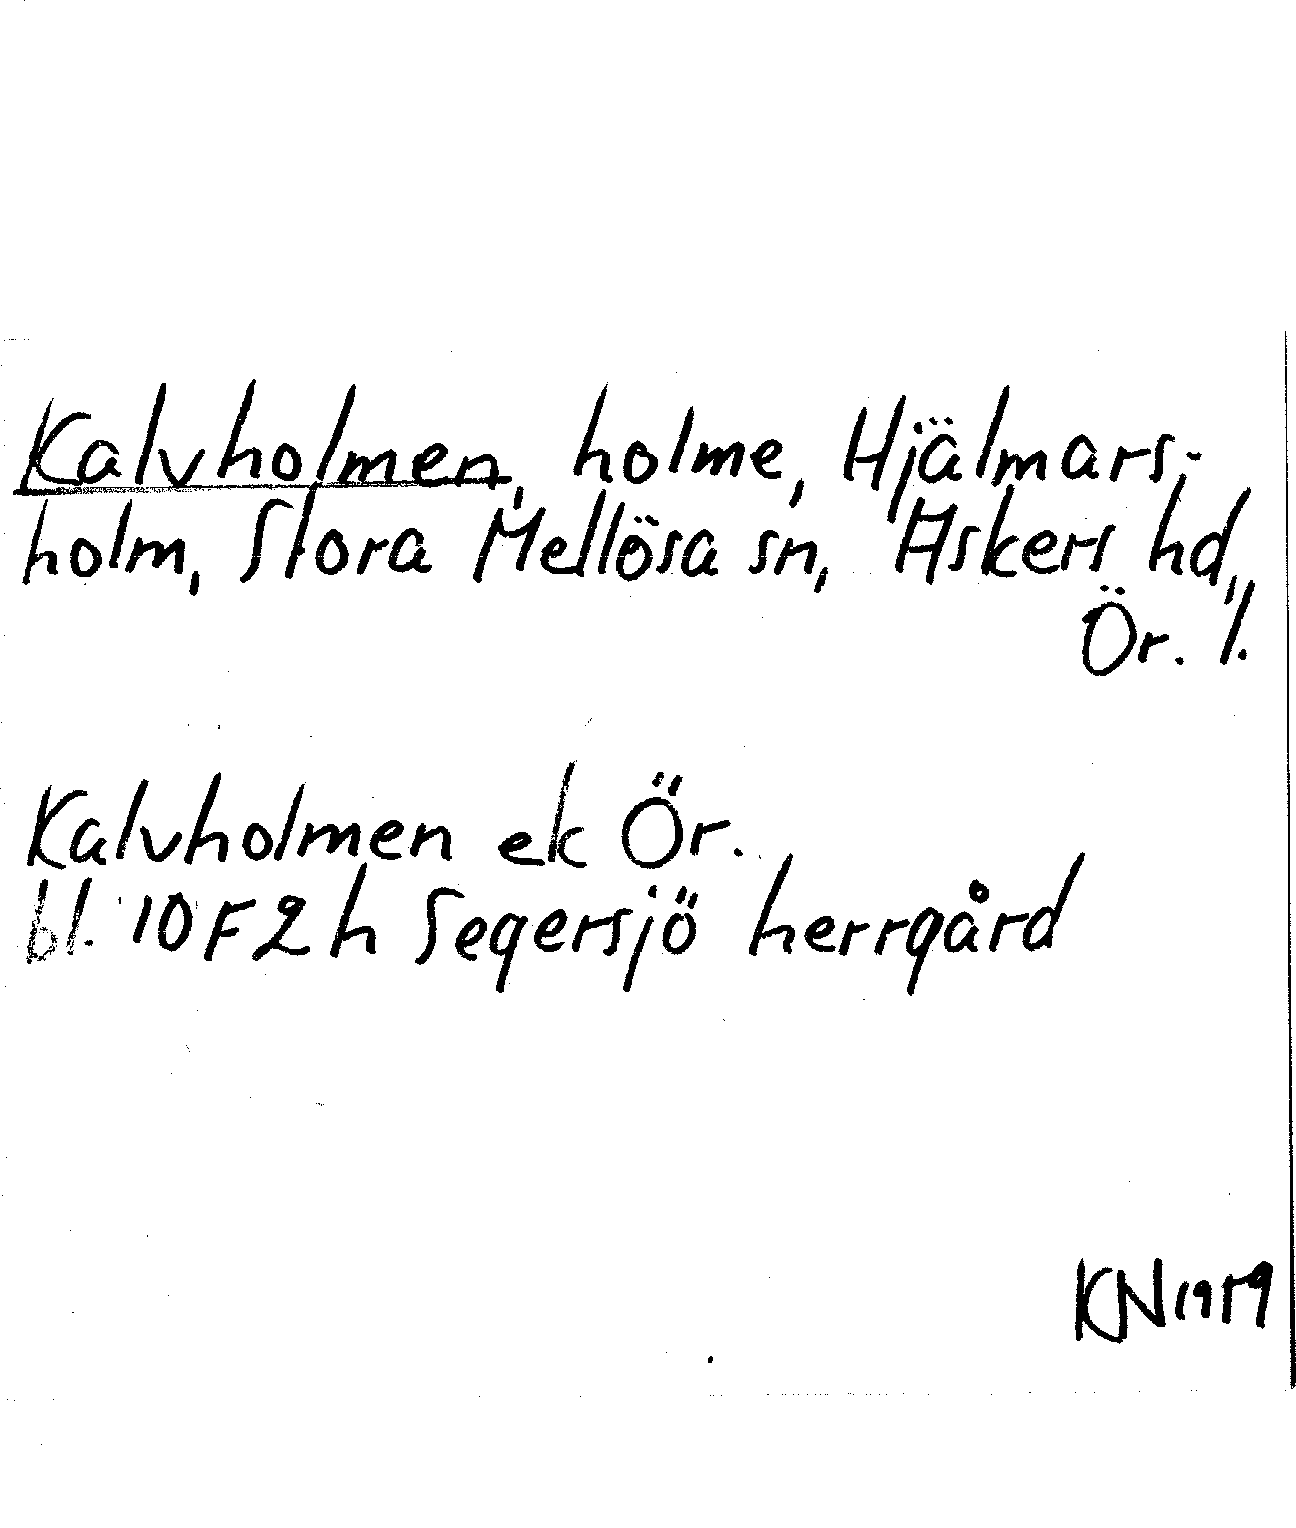 Kalvholmen, holme, Hjälmars-
holm, Stora Mellösa sn, Askers hd,
Ör. /.
Kalvholmen ek Ör.
bl. 10F2h Segersjö herrgård
KN 1959